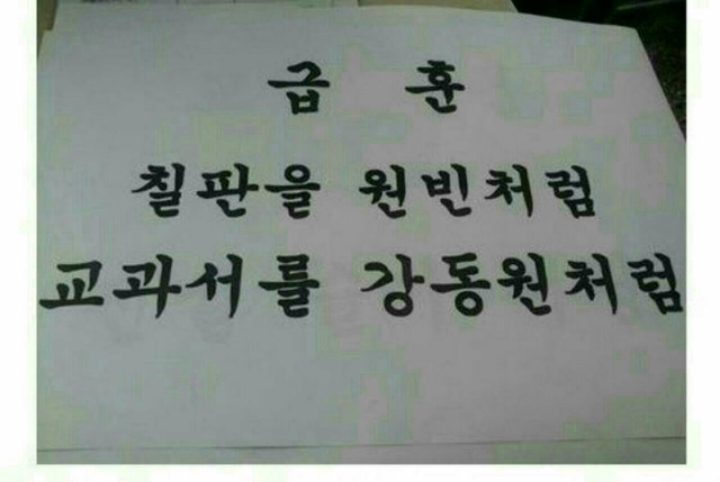 급 훈
칠판을 원빈처럼
교과서를 강동원처럼